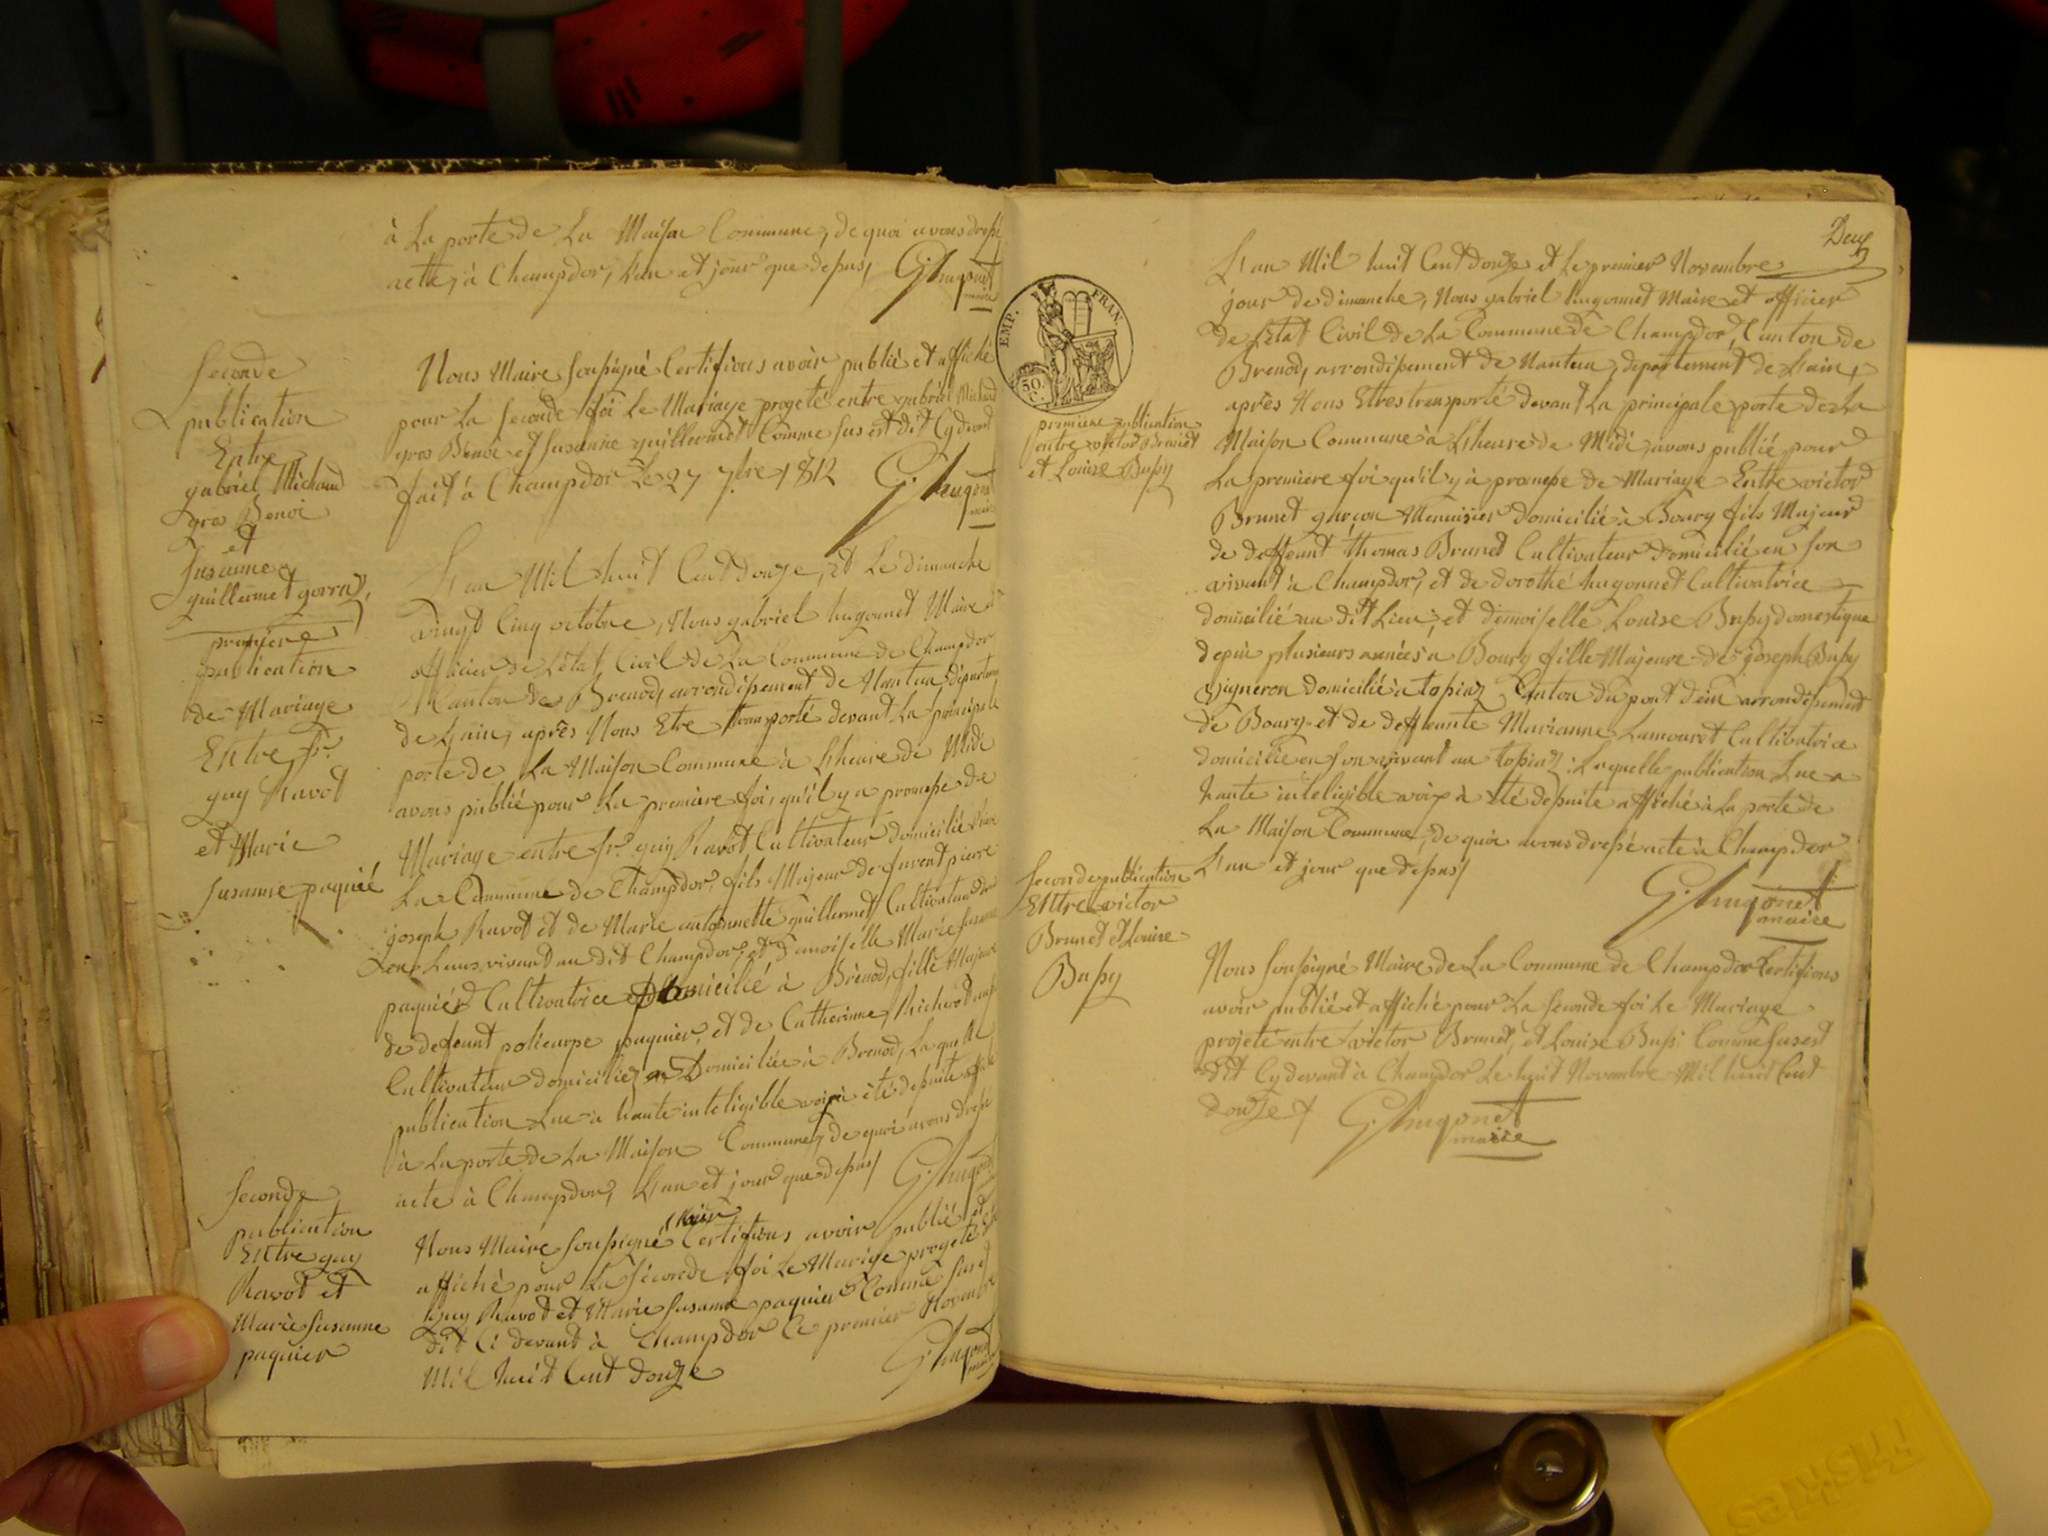 à La porte de La Maison Commune, de quoi avons dressé
acte, à Champdor, L'an et jour que dessus, G. hugonnet
maire
Seconde
publication
Entre
gabriel Michaud
gros Benoi
et
Susanne
guillermet gorraz,
Nous Maire soussigné Certifions avoir publié et affiché
pour La Seconde foi Le Mariage progeté entre gabriel Michaud
gros Benoi et Susanne guillermet Comme sus est dit Cydevant
fait à Champdor Le 27 7bre 1812 G. hugonet
maire
premiere
publication
de Mariage
Entre fr.
guy Ravot
et Marie
Susanne paquié
L'an Mil huit Cent douze, et Le dimanche
vingt Cinq octobre, Nous gabriel hugonnet Maire et
officier de L'état Civil de La Commune de Champdor
Canton de Brenod, arrondissement de Nantua, département
de L'ain, après Nous Etre transporté devant La principale
porte de La Maison Commune à L'heure de Midi
avons publié pour La premiere foi, qu'il y a promesse de
Mariage entre fr. guy Ravot Cultivateur domicilié dans
La Commune de Champdor, fils Majeur de furent pierre
joseph Ravot et de Marie antoinette guillermet Cultivateur
Leur vivant au dit Champdor, et d'moiselle Marie Susanne
paquiéd Cultivatrice domicilié à Brénod, fille Majeure
de defeunt policarpe paquier, et de Catherinne Richerot
Cultivateur domiciliez Domiciliée à Brenod, La quelle
publication Lue à haute inteligible voix à été depuite affiché
à La porte de La Maison Commune, de quoi avons dressé
acte à Champdor, L'an et jour que dessus G. hugonet
Seconde
publication
Entre guy
Ravot et
Marie Susanne
paquier
Nous Maire soussigné Certifions avoir publié et
affiché pour La Séconde foi Le Mariage progeté
Guy Ravot et Marie Susanne paquier Comme sus est
dit Ci devant à Champdor Ce premier Novembre
Mil huit Cent douze G. hugonet
maire
Deux
EMP. FRAN
50.
C.
premiere publication
entre victor Brunet
et Louise Bussy
L'an Mil huit Cent douze et Le premier Novembre
jour de dimanche, Nous gabriel hugonnet Maire et officier
de L'état Civil de La Commune de Champdor, Canton de
Brenod, arrondissement de Nantua, departement de L'ain,
après Nous Etres transporté devant La principale porte de La
Maison Commune à L'heure de Midi, avons publié pour
La premiere foi qu'il y à promesse de Mariage Entre victor
Brunet garçon Menuisier domicilié à Bourg fils Majeur
de deffeunt thomas Brunet Cultivateur domicilié en son
vivant à Champdor, et de dorothé hugonnet Cultivatrice
domicilié au dit Lieu, et demoiselle Louise Bussy domestique
depui plusieurs années à Bourg fille Majeure de joseph Bussy
Vigneron domicilié à tossiaz, Canton du pont d'ein arrondissement
de Bourg et de deffeunte Marianne Lamouret Cultivatrice
domicilié en son vivant au tossiaz; Laquelle publication Lue a
haute inteligible voix à été depuite affiché à La porte de
La Maison Commune, de quoi avons dressé acte à Champdor
L'an et jour que dessus
G. hugonet
maire
Seconde publication
Entre victor
Brunet et Louise
Bussy
Nous soussigné Maire de La Commune de Champdor Certifions
avoir publié et affiché pour La Seconde foi Le Mariage
projeté entre victor Brunet, et Louise Bussi Comme sus est
dit Cy devant à Champdor Le huit Novembre Mil huit Cent
douze G. hugonet
maire
FRISKIES